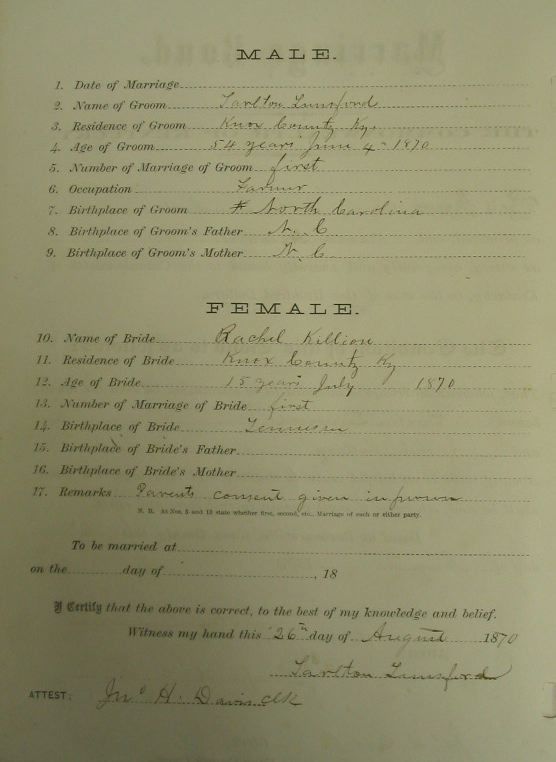 MALE.
1. Date of Marriage
2. Name of Groom Tarlton Lunsford
3. Residence of Groom Knox County Ky.
4. Age of Groom 54 years June 4 - 1870
5. Number of Marriage of Groom first
6. Occupation Farmer
7. Birthplace of Groom North Carolina
8. Birthplace of Groom's Father N. C
9. Birthplace of Groom's Mother N. C
FEMALE.
10. Name of Bride Rachel Killion
11. Residence of Bride Knox County Ky
12. Age of Bride 15 years July 1870
13. Number of Marriage of Bride first
14. Birthplace of Bride Tennessee
15. Birthplace of Bride's Father
16. Birthplace of Bride's Mother
17. Remarks Parents consent given in person
N. B. At Nos. 5 and 13 state whether first, second, etc., Marriage of each or either party.
To be married at
on the day of , 18
I Certify that the above is correct, to the best of my knowledge and belief.
Witness my hand this 26th day of August 1870
Tarlton Lunsford
ATTEST: Jno H. Davis clk